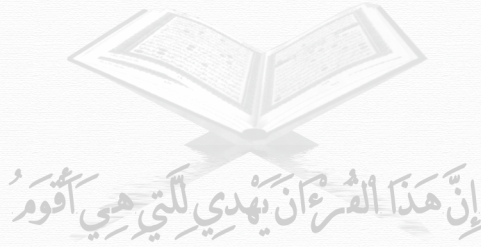 إِنَّ هَذَا الْقُرْءَانَ يَهْدِي لِلَّتِي هِيَ أَقْوَمُ